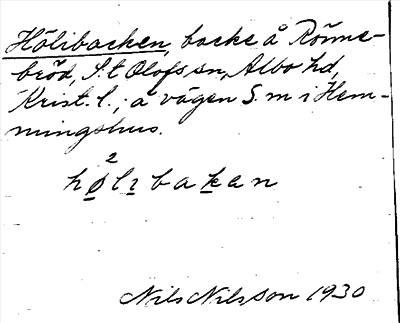 Hölibacken, backe å Rönne-
bröd, S:t Olofs sn, Albo hd,
Krist. l.; å vägen S. m i Hem-
mingshus.
hø²lıbakan
Nils Nilsson 1930